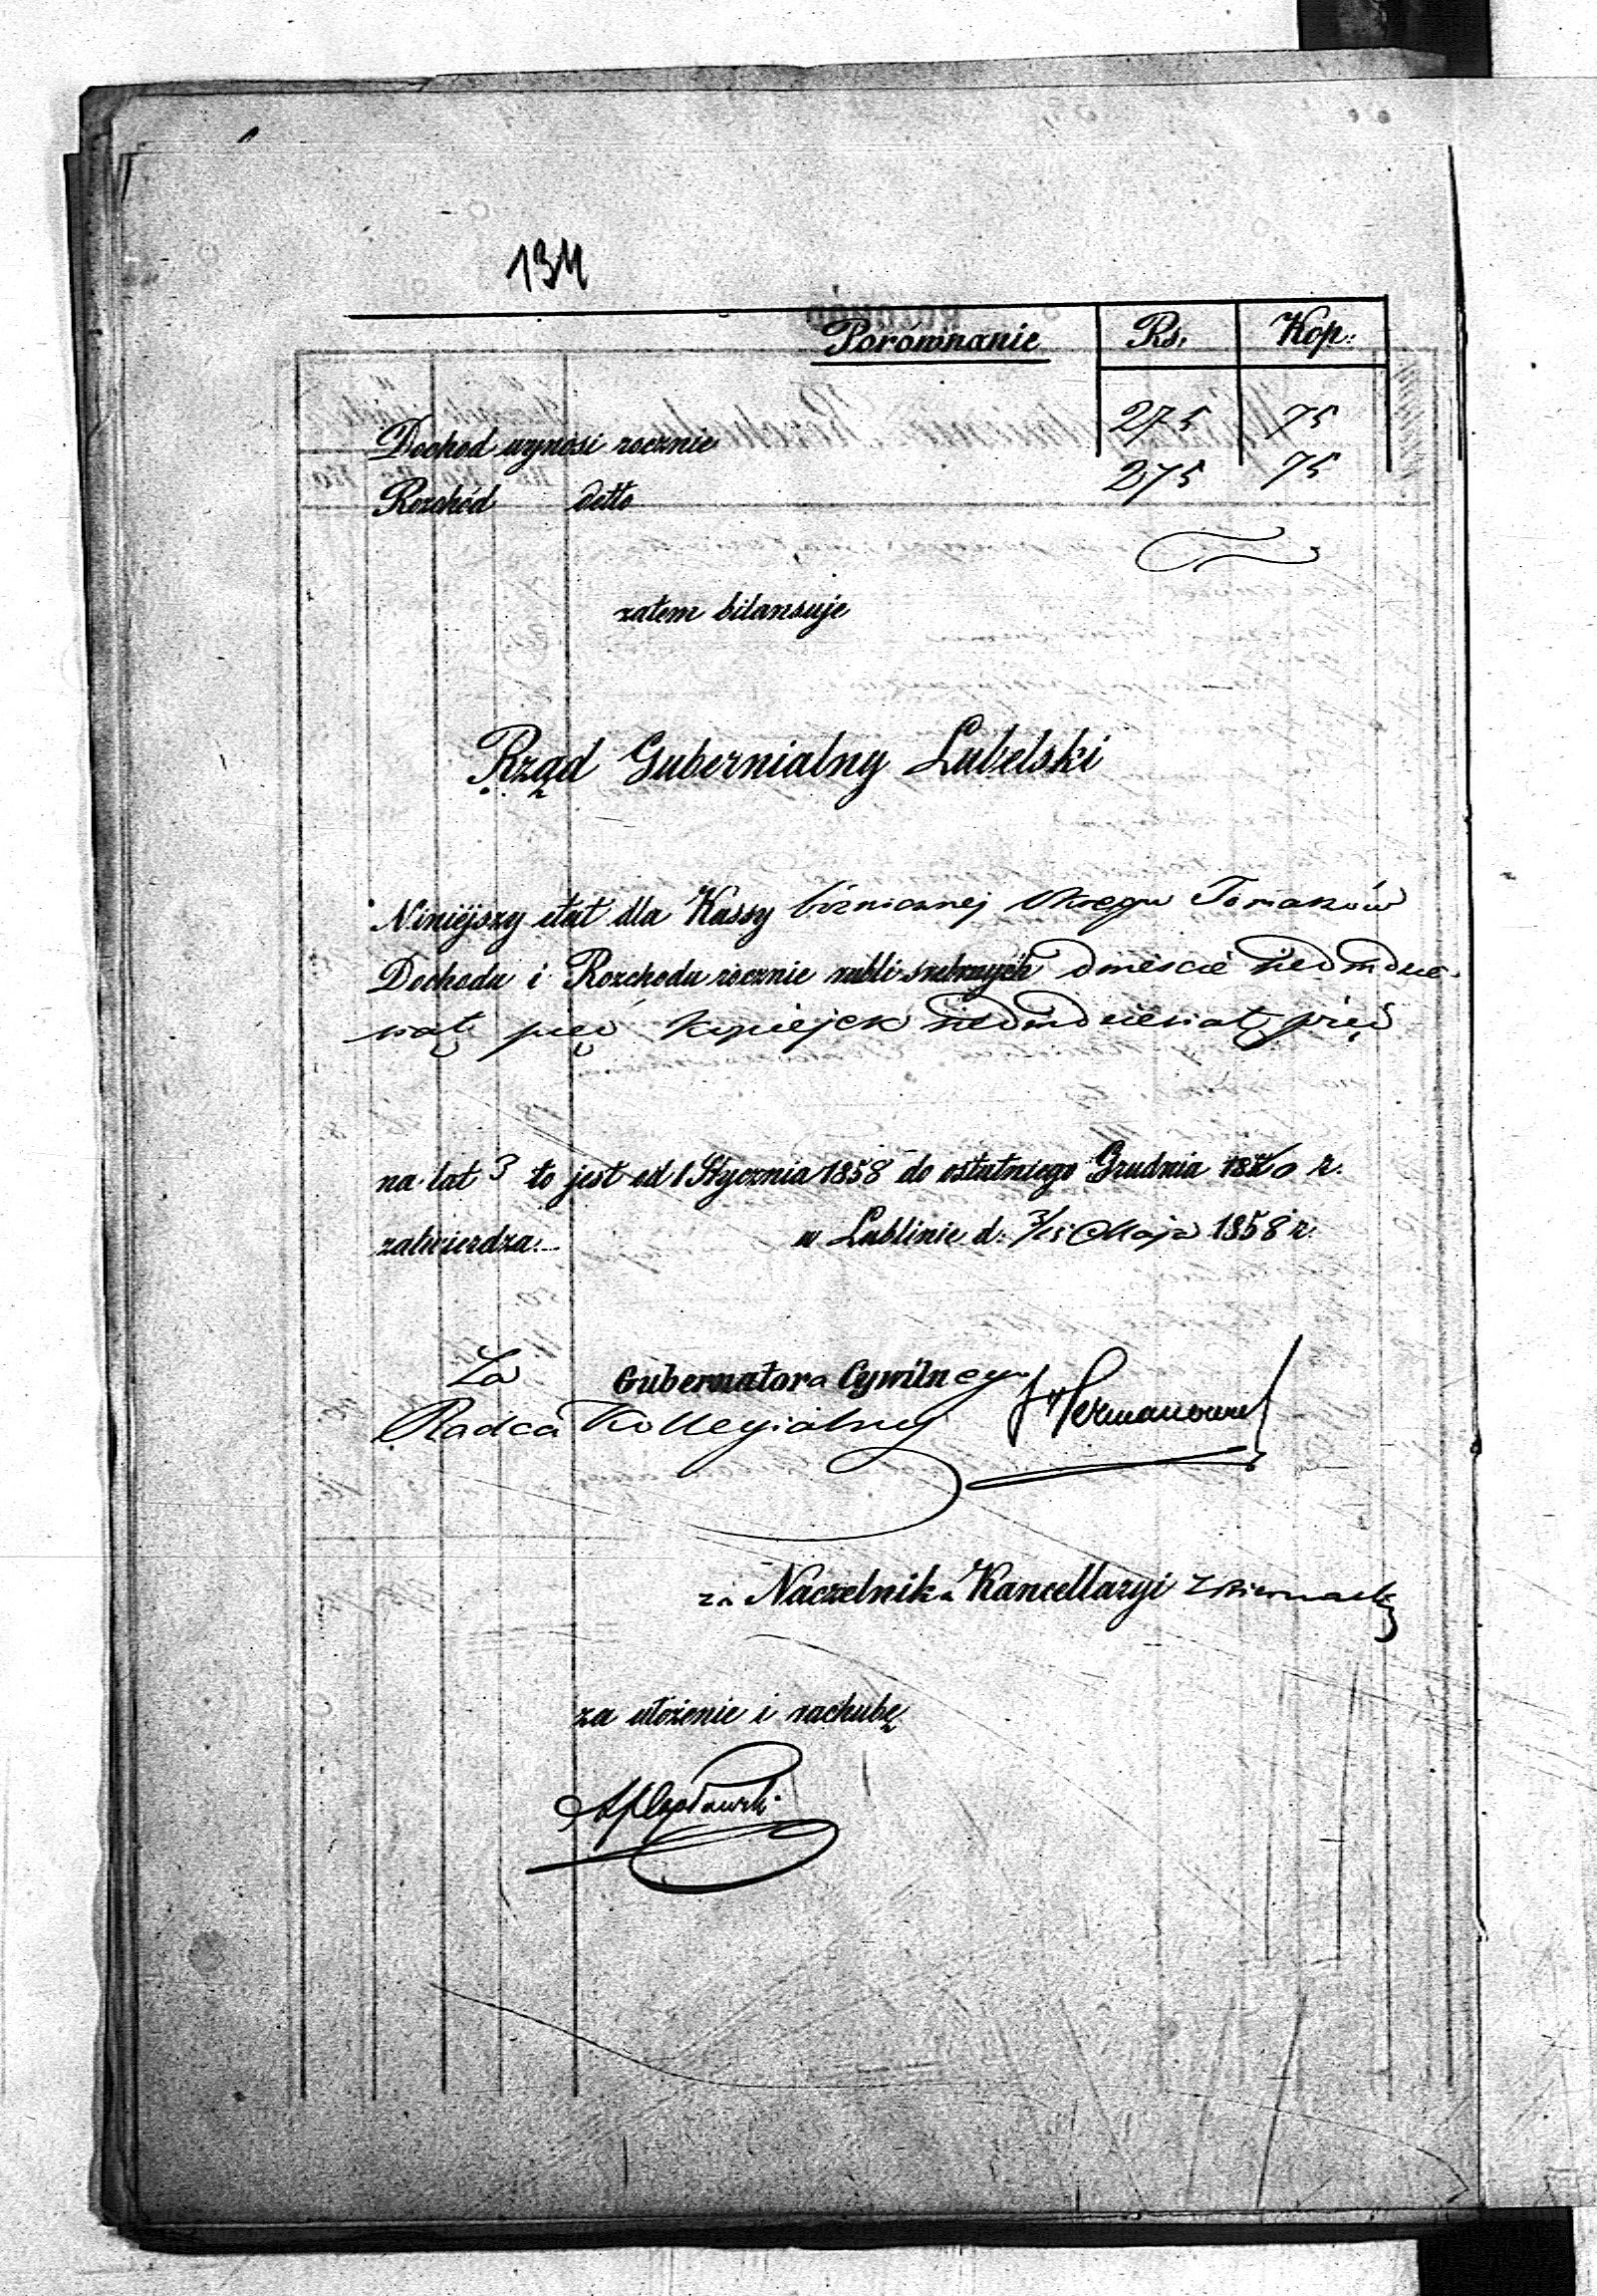 134
Porównanie Rs. Kop:
Dochod wynosi rocznie 275 75
Rozchód detto 275 75
zatem bilansuje
Rząd Gubernialny Lubelski
Niniejszy etat dla Kassy bóżnicznej Okręgu
Dochodu i Rozchodu rocznie rubli srebrnych dwieście siedmdzie-
siąt pięć kopiejek siedmdziesiąt pięć
na lat 3 to jest od 1 Stycznia 1858 do ostatniego Grudnia r.
zatwierdza. w Lublinie d: Maja 1858 r.
Za Gubernatora Cywilnego
Radca Kollegialny
za Naczelnika Kancellaryi
za ułożenie i rachubę